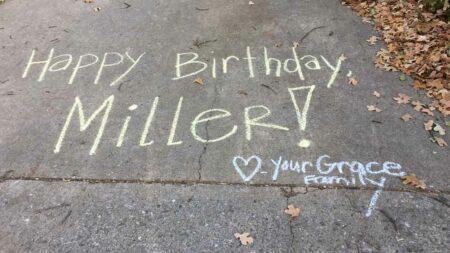 Happy Birthday,
Miller!
♡-your Grace
Family!